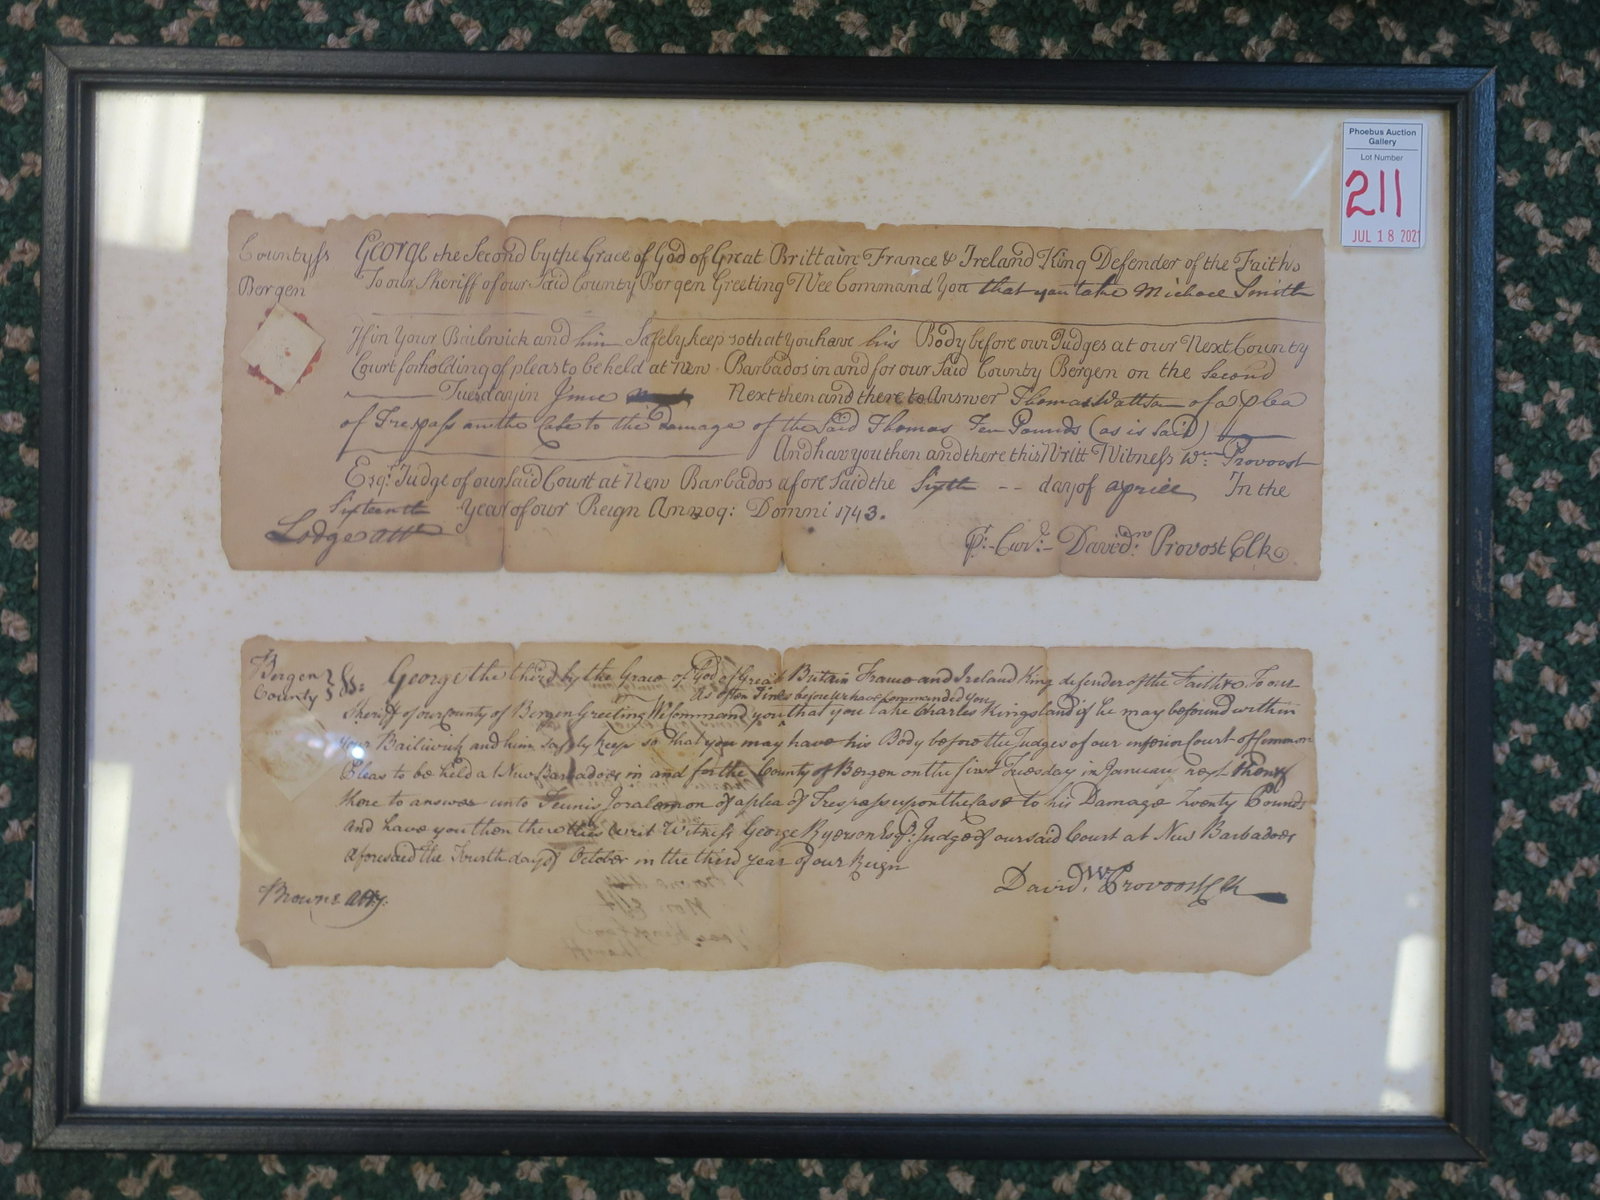 Phoebus Auction
Gallery
Lot Number
211
JUL 18 2021
County ss
Bergen
George the Second by the Grace of God of Great Brittain France & Ireland King Defender of the Faith &
To our Sheriff of our Said County Bergen Greeting Wee Command You that you take Michael Smith
If in Your Bailiwick and him Safely keep so that you have his Body before our Judges at our Next County
Court for holding of pleas to be held at New Barbados in and for our Said County Bergen on the Second
Tuesday in June Next then and there to Answer Thomas Wattson of a plea
of Trespass on the Case to the Damage of the Said Thomas Ten Pounds (as is Said)
And have you then and there this Writt Witness Wm: Provoost
Esqr. Judge of our said Court at New Barbados afore Said the Sixth -- day of aprill In the
Sixteenth Year of our Reign Annoq: Domni 1743.
Lodge att
Pr: Cur: David: Provost Clk
Bergen
County } Ss:
George the third by the Grace of God of Great Britain France and Ireland King defender of the Faith &c To our
As often Times before we have commanded you
Sheriff of our County of Bergen Greeting We Command you that you take Charles Kingsland if he may be found within
your Bailiwick and him safely keep so that you may have his Body before the Judges of our inferior Court of Common
Pleas to be held at New Barbadoes in and for the County of Bergen on the first Tuesday in January next then &
there to answer unto Teunis Joralemon of a plea of Trespass upon the Case to his Damage Twenty Pounds
And have you then there this writ Witness George Ryerson Esqr. Judge of our said Court at New Barbadoes
aforesaid the Fourth day of October in the third year of our Reign
Browne Atty.
David W Provoost Clk